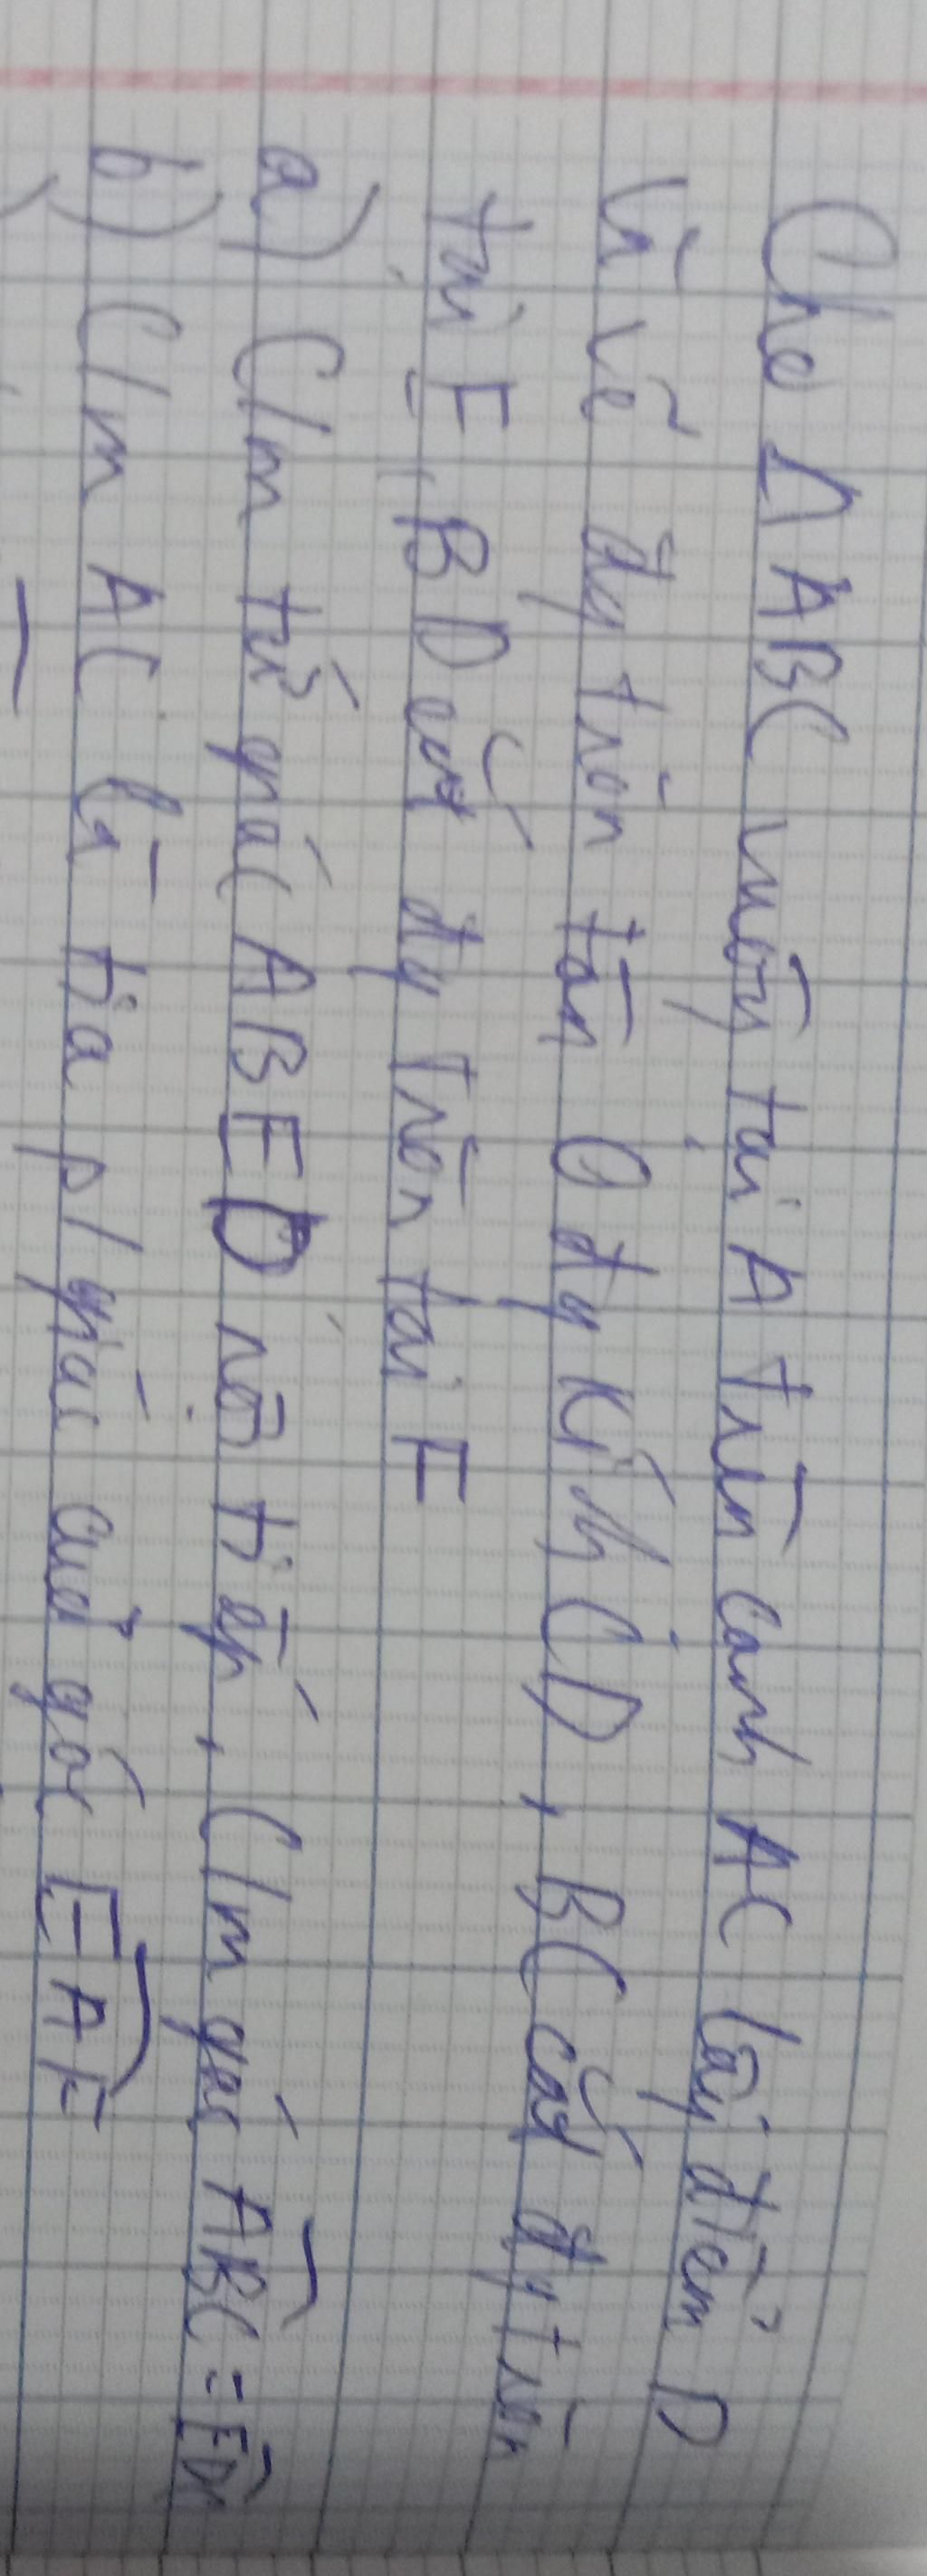 Cho Δ ABC vuông tại A trên cạnh AC lấy điểm D
và vẽ đg tròn tân O đg kính CD, BC cắt đg tròn
tại E, BD cắt đg tròn tại F
a) C/m tứ giác ABED nội tiếp, C/m góc ABC = EDC
b) C/m AC là tia p/giác của góc EAF